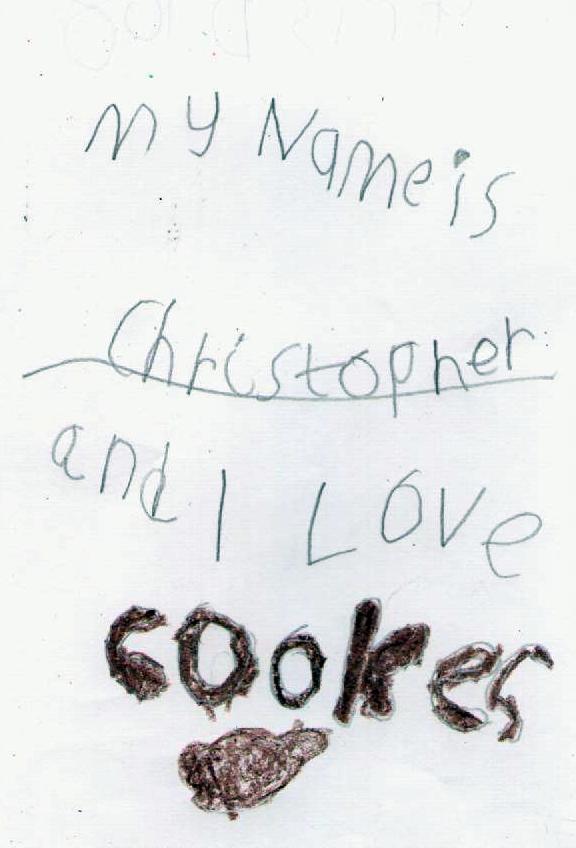 my Name is
Christopher
and I LOVe
cookes